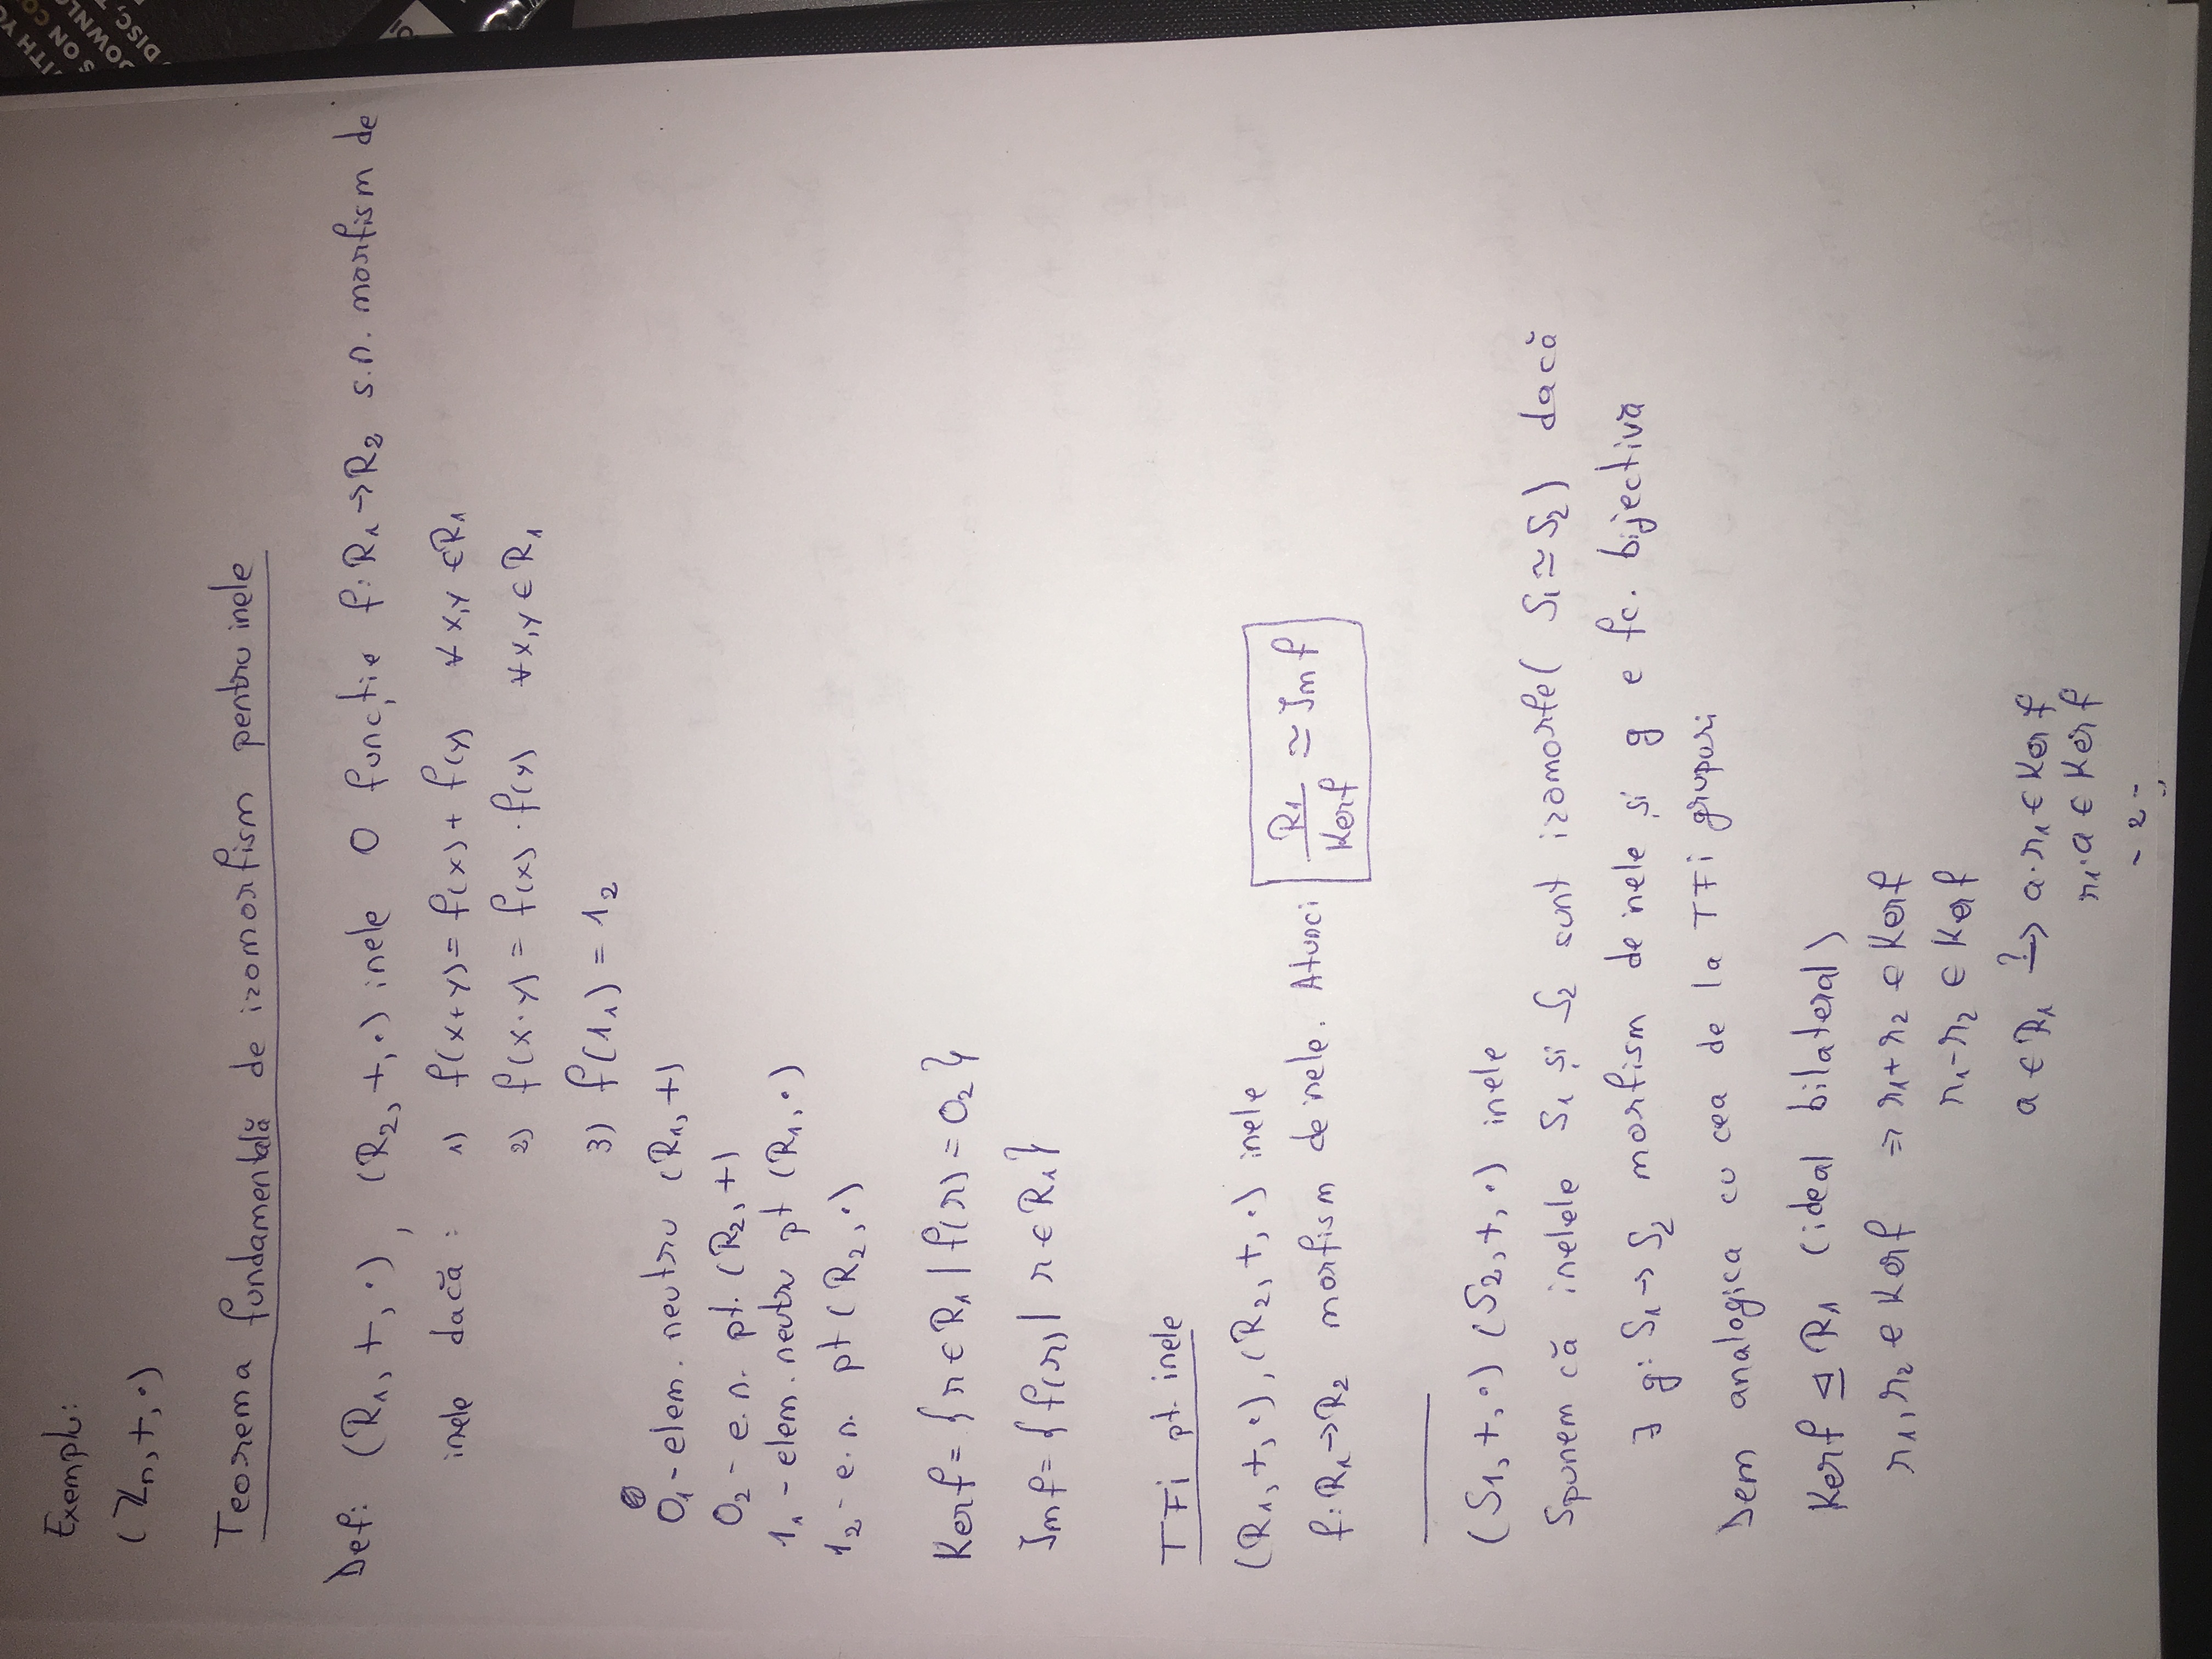 Exemplu:
(ℤn, +, ·)
Teorema fundamentală de izomorfism pentru inele
Def: (R₁, +, ·), (R₂, +, ·) inele O funcție f: R₁ → R₂ s.n. morfism de
inele dacă: 1) f(x+y) = f(x) + f(y) ∀ x,y ∈ R₁
2) f(x·y) = f(x) · f(y) ∀ x,y ∈ R₁
3) f(1₁) = 1₂
0₁ - elem. neutru (R₁, +)
0₂ - e.n. pt. (R₂, +)
1₁ - elem. neutru pt (R₁, ·)
1₂ - e.n. pt (R₂, ·)
Kerf = {r ∈ R₁ | f(r) = 0₂}
Imf = {f(r) | r ∈ R₁}
TFi pt. inele
(R₁, +, ·), (R₂, +, ·) inele
f: R₁ → R₂ morfism de inele. Atunci R₁/Kerf ≃ Imf
(S1, +, ·) (S2, +, ·) inele
Spunem că inelele S₁ și S₂ sunt izomorfe (S₁ ≃ S₂) dacă
∃ g: S₁ → S₂ morfism de inele și g e fc. bijectivă
Dem analogica cu cea de la TFi grupuri
Kerf ⊴ R₁ (ideal bilateral)
r₁, r₂ ∈ Kerf ⇒ r₁ + r₂ ∈ Kerf
r₁ - r₂ ∈ Kerf
a ∈ R₁ ?→ a·r₁ ∈ Kerf
r₁·a ∈ Kerf
- 2 -
ITH YO
S ON CO
DOWNLO
DISC, T